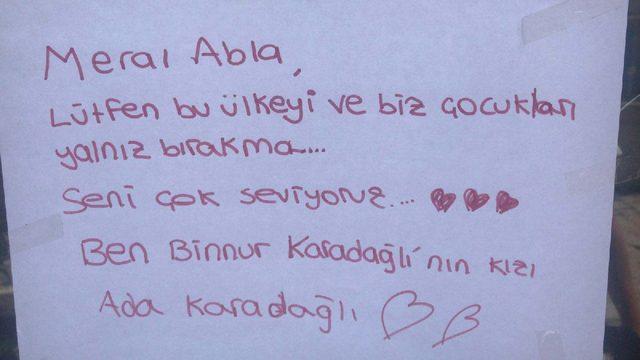 Meral Abla,
Lütfen bu ülkeyi ve biz çocukları
yalnız bırakma...
Seni çok seviyoruz...
Ben Binnur Karadağlı'nın kızı
Ada Karadağlı